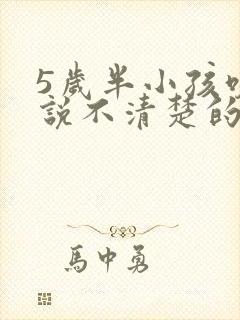 5歲半小孩
說不清楚的
馬中勇